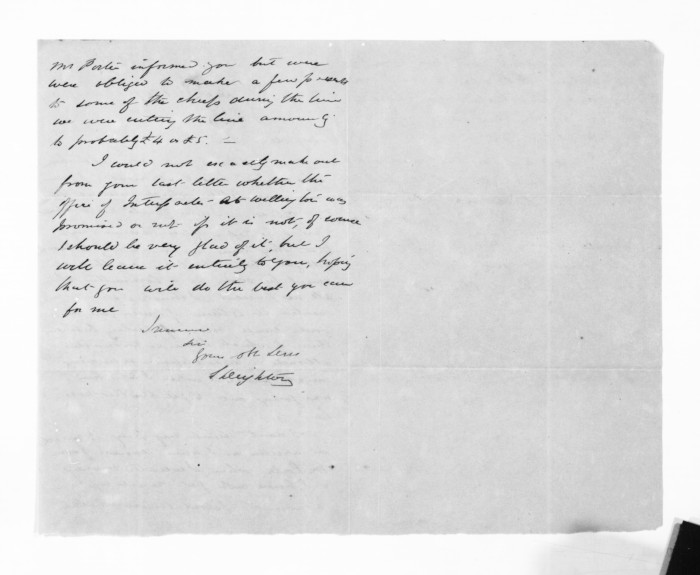 Mr Porter informed you but were
were obliged to make a few presents
to some of the chiefs during the time
we were cutting the line amoung
to probably £4 or £5. —
I could not exactly make out
from your last letter whether the
office of Interpreter at Wellington was
promised or not if it is not, of course
I should be very glad of it, but I
will leave it entirely to you, hoping
that you will do the best you can
for me
I remain
Sir
Your ob Serv
S Deighton